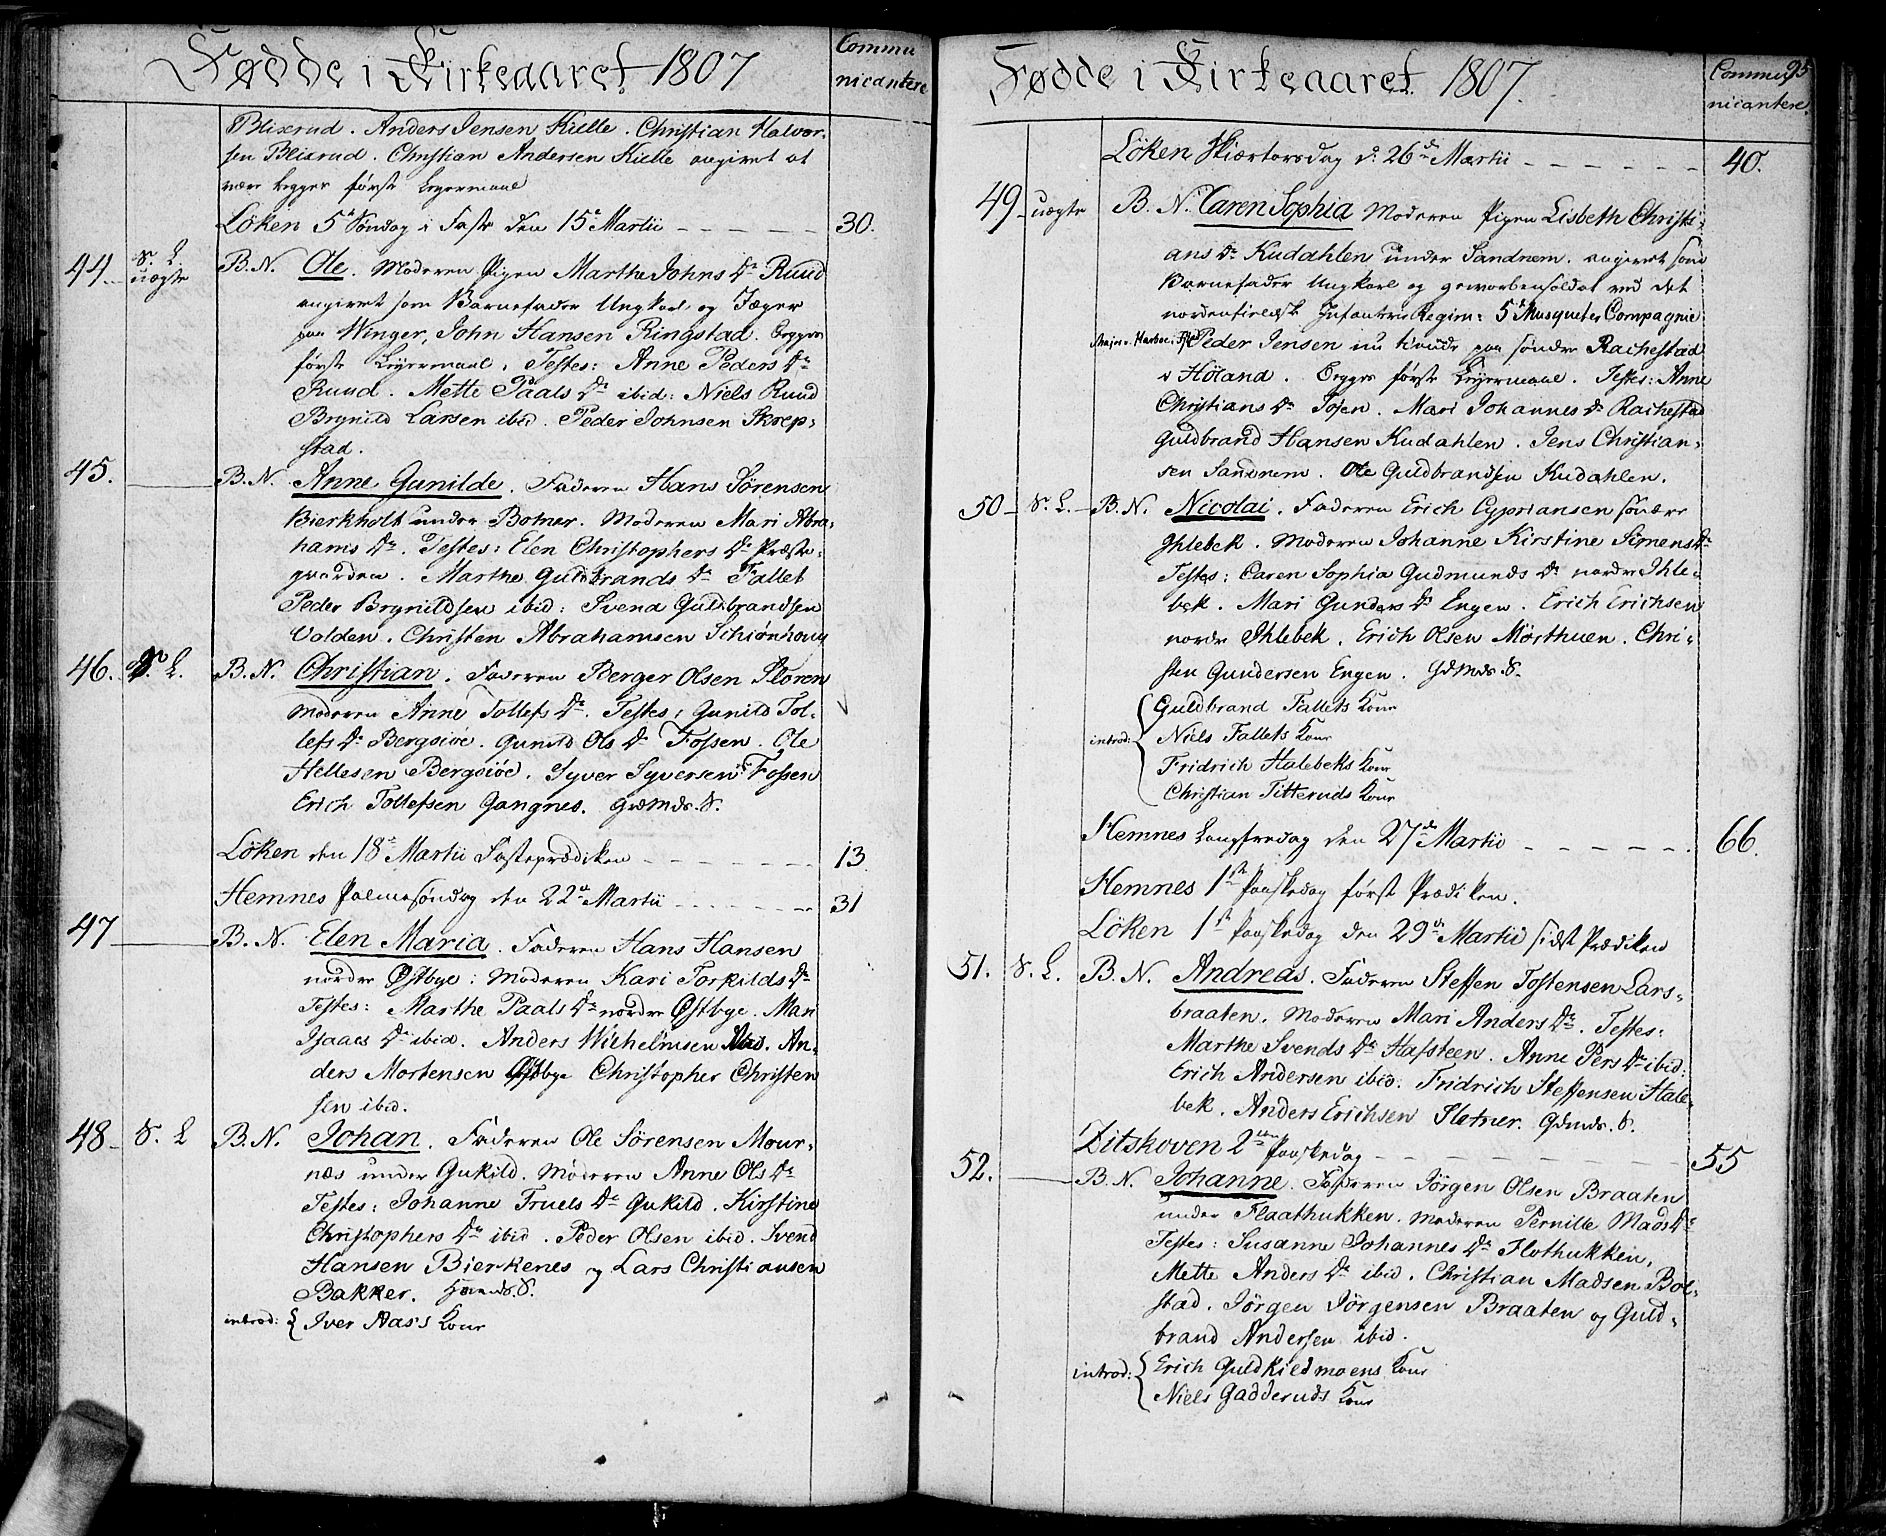 Fødde i Kirkeaaret 1807
Commu
nicantere
Blixrud. Anders Jensen Kielle. Christian Halvor-
sen Blixrud. Christian Andersen Kielle angivet at
være begges første Leyermaal
Löken 5te Søndag i Faste den 15de Martii - - - - - 30.
44. S. L. uægte B. N. Ole. Moderen Pigen Marthe Johns Dr Ruud
angivet som Barnefader Ungkarl og Jæger
paa Winger, John Hansen Ringstad. Begges
første Leyermaal. Testes: Anne Peders Dr
Ruud. Mette Paals Dr ibid: Niels Ruud
Brynild Larsen ibid. Peder Johnsen Skrep-
stad.
45. B. N. Anne Gunilde. Faderen Hans Sørensen
Bierkholt under Botner. Moderen Mari Abra-
hams Dr. Testes: Elen Christophers Dr Præste-
gaarden. Marthe Guldbrands Dr Fallet
Peder Brynildsen ibid: Svend Guldbrandsen
Valden. Christen Abrahamsen Schiønhoug
46. S. L. B. N. Christian. Faderen Berger Olsen Floren
Moderen Anne Tollefs Dr. Testes: Gunild Tol-
lefs Dr Bergsiøe. Gunild Ols Dr Fossen. Ole
Hellesen Bergsiöe. Syver Syversen Fossen
Erich Tollefsen Gangnes. Gdmds. S.
Löken den 18de Martii Fasteprædiken - - - - - 13
Hemnes Palmesøndag den 22de Martii - - - - - 31
47 B. N. Elen Maria. Faderen Hans Hansen
nordre Østbye: Moderen Kari Torkilds Dr
Testes: Marthe Paals Dr nordre Østbye. Mari
Isaacs Dr ibid. Anders Wilhelmsen ibid. An-
ders Mortensen Østbye Christopher Christen
sen ibid.
48 S. L B. N. Johan. Faderen Ole Sørensen Mour-
næs under Gukild. Moderen Anne Ols Dr
Testes: Johanne Truels Dr Gukild. Kirstine
Christophers Dr ibid. Peder Olsen ibid. Svend
Hansen Bierkenes og Lars Christiansen
Bakker. Hmds. S.
introd: { Iver Aas's Kone
Fødde i Kirkeaaret 1807.
95
Commu
nicantere
Löken Skiærtorsdag d. 26de Martii - - - - - 40.
49 uægte B. N. Caren Sophia Moderen Pigen Lisbeth Christi-
ans Dr Kudahlen under Sandnem. angivet som
Barnefader Ungkarl og geworbensoldat ved det
nordenfieldsk Infanterie Regim: 5te Musqueteer Compagnie
Peder Jensen nu tienende paa søndre Rachestad
i Høland. Begges første Leyermaal. Testes: Anne
Christians Dr Tosen. Mari Johannes Dr Rachestad
Guldbrand Hansen Kudahlen. Jens Christian-
sen Sandnem. Ole Guldbrandsen Kudahlen.
50 S. L. B. N. Nicolai. Faderen Erich Cypriansen søndre
Ihlebek. Moderen Johanne Kirstine Simens Dr
Testes: Caren Sophia Gudmunds Dr nordre Ihle-
bek. Mari Gunders Dr Engen. Erich Erichsen
nordr Ihlebek. Erich Olsen Mørthuen. Chri-
sten Gundersen Engen. Gdmds. S.
introd: { Guldbrand Fallets Kone
Niels Fallets Kone
Fridrich Halebeks Kone
Christian Titteruds Kone
Hemnes Langfredag den 27de Martii - - - - - 66.
Hemnes 1ste Paaskedag først Prædiken.
Löken 1st Paaskedag den 29de Martii sidst Prædiken
51. S. L. B. N. Andreas. Faderen Steffen Tostensen Lars-
braaten. Moderen Mari Anders Dr. Testes:
Marthe Svends Dr Hafsteen. Anne Pers Dr ibid:
Erich Andersen ibid. Fridrich Steffensen Hale-
bek. Anders Erichsen Flotner. Gdmds. S.
Zitskoven 2den Paaskedag - - - - - 55
52. B. N. Johanne. Faderen Jörgen Olsen Braaten
under Flaathukken. Moderen Pernille Mads Dr
Testes: Susanne Johannes Dr Flothukken,
Mette Anders Dr ibid. Christian Madsen Bol-
stad. Jörgen Jörgensen Braaten og Guld-
brand Andersen ibid.
introd: { Erich Guldkildmoens Kone
Niels Gadderuds Kone